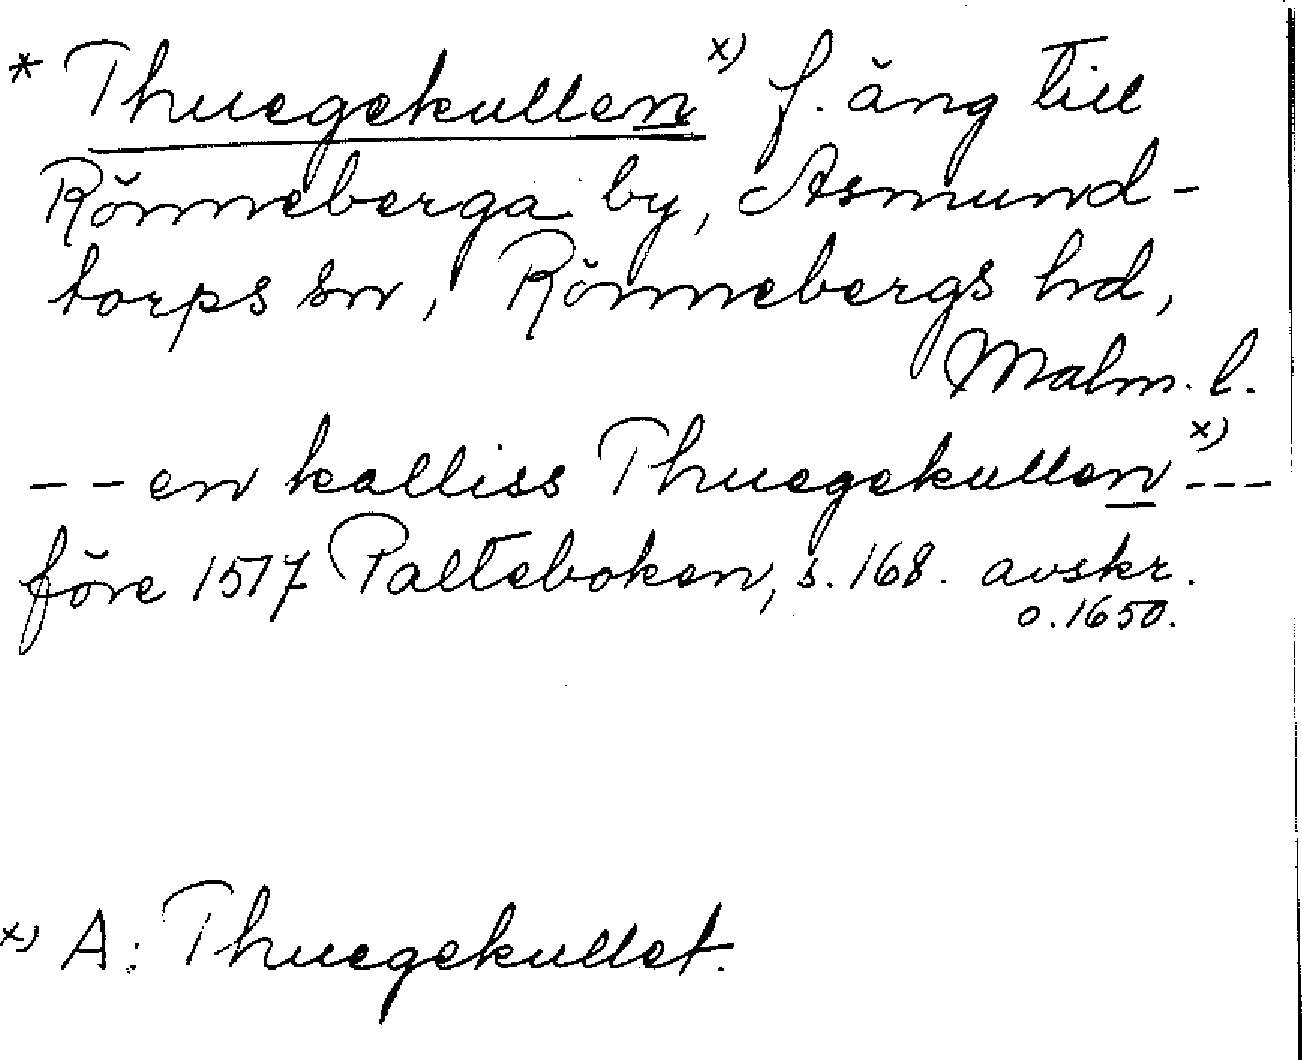 * Thuegekullen x) f. äng till
Rönneberga by, Asmund-
torps sn, Rönnebergs hd,
Malm. l.
-- en kalliss Thuegekullen x) ---
före 1517 Palteboken, s. 168. avskr.
o. 1650.
x) A: Thuegekullet.